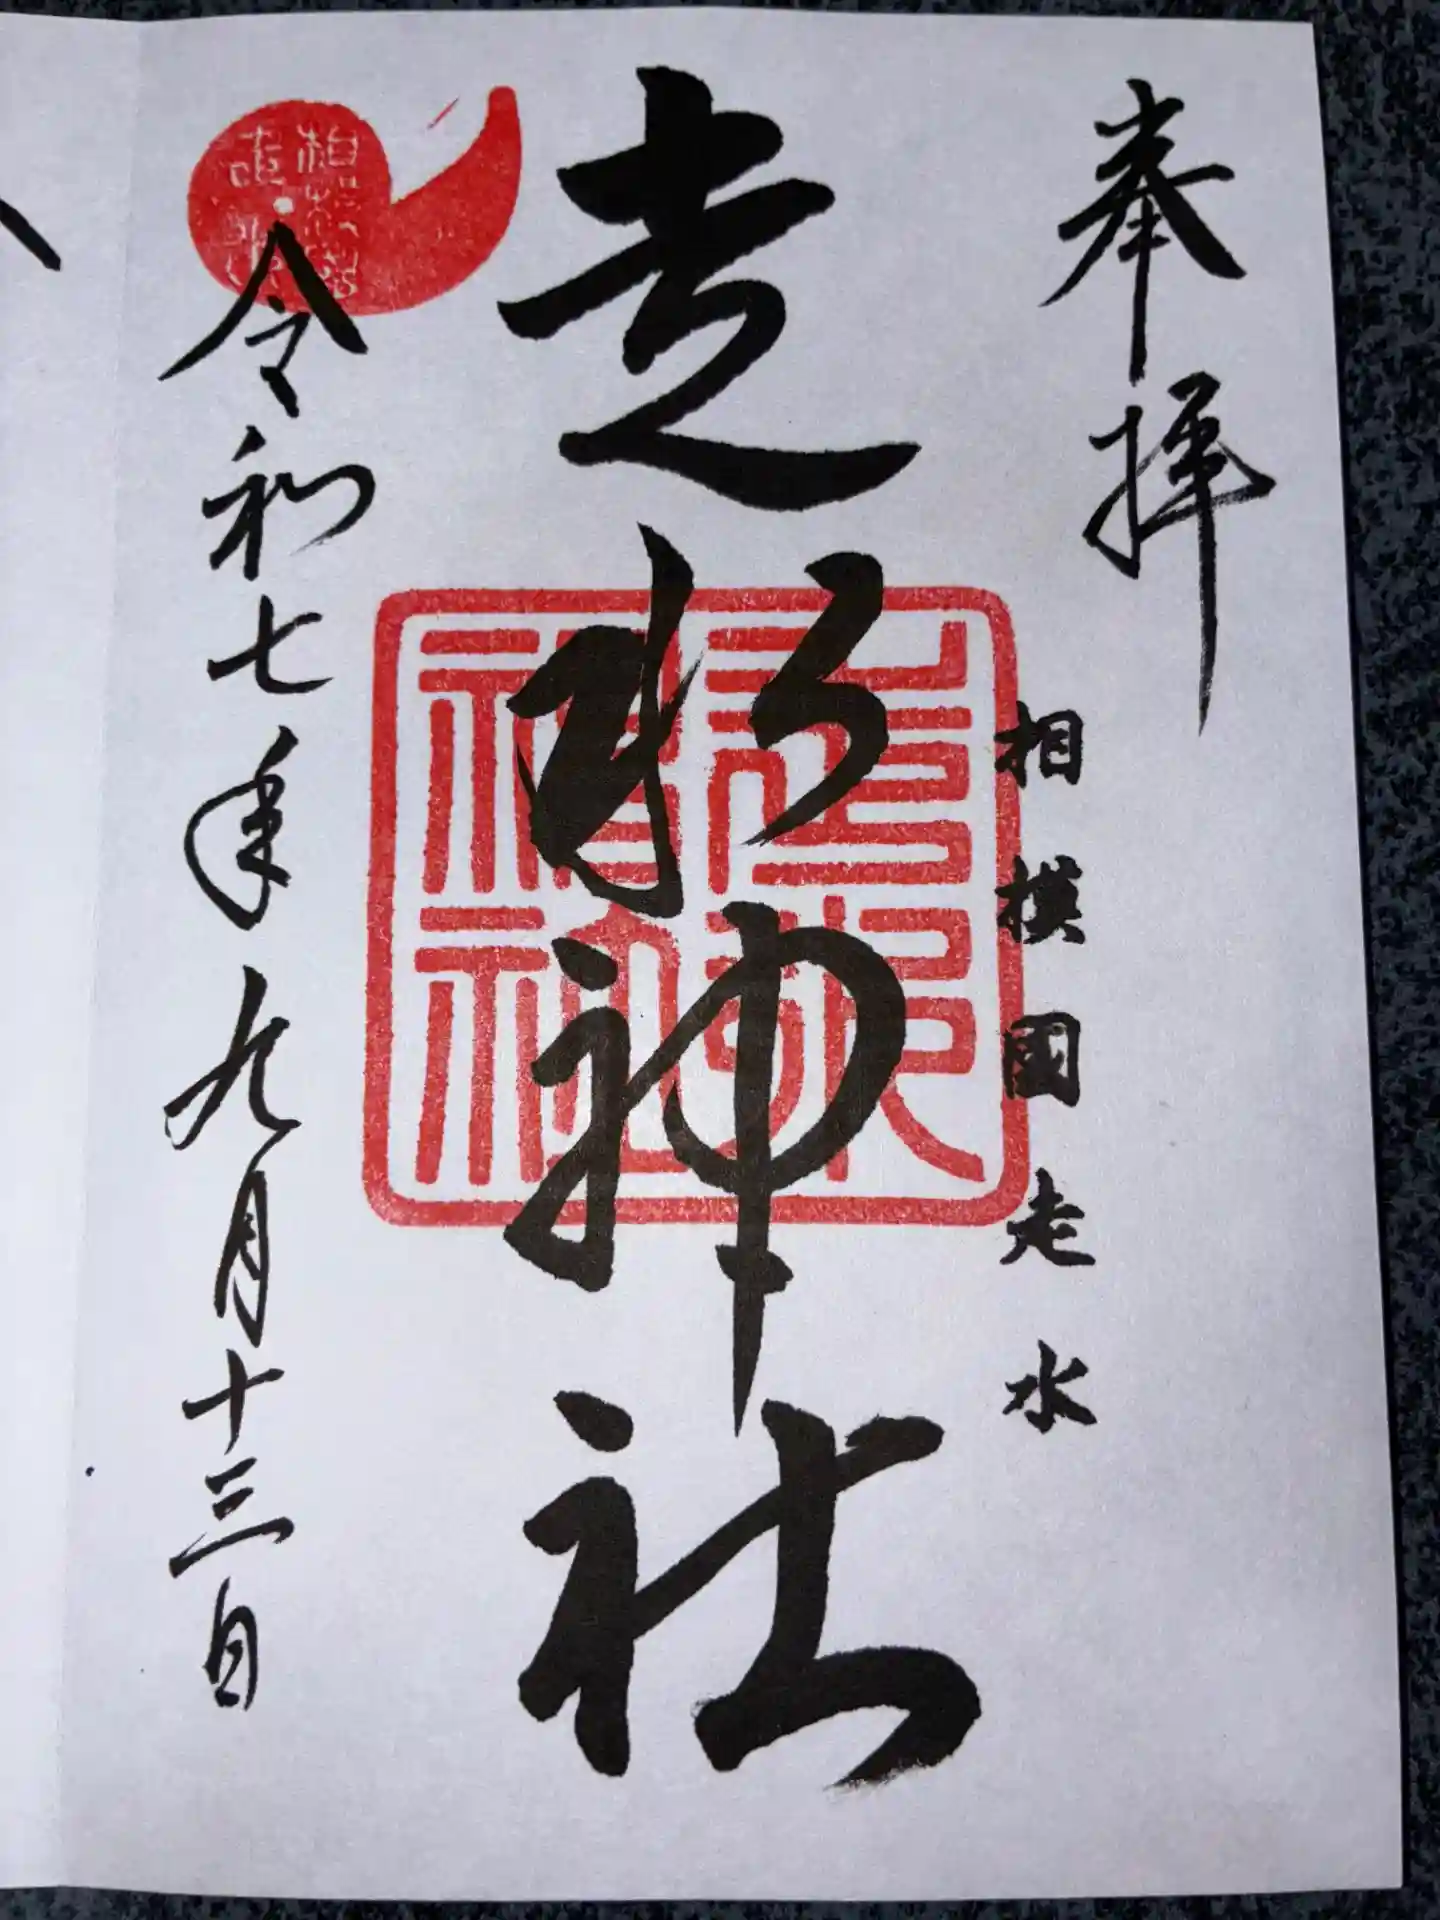 奉拝
相模國走水
走水神社
走水神社
令和七年九月十三日
相模國走水